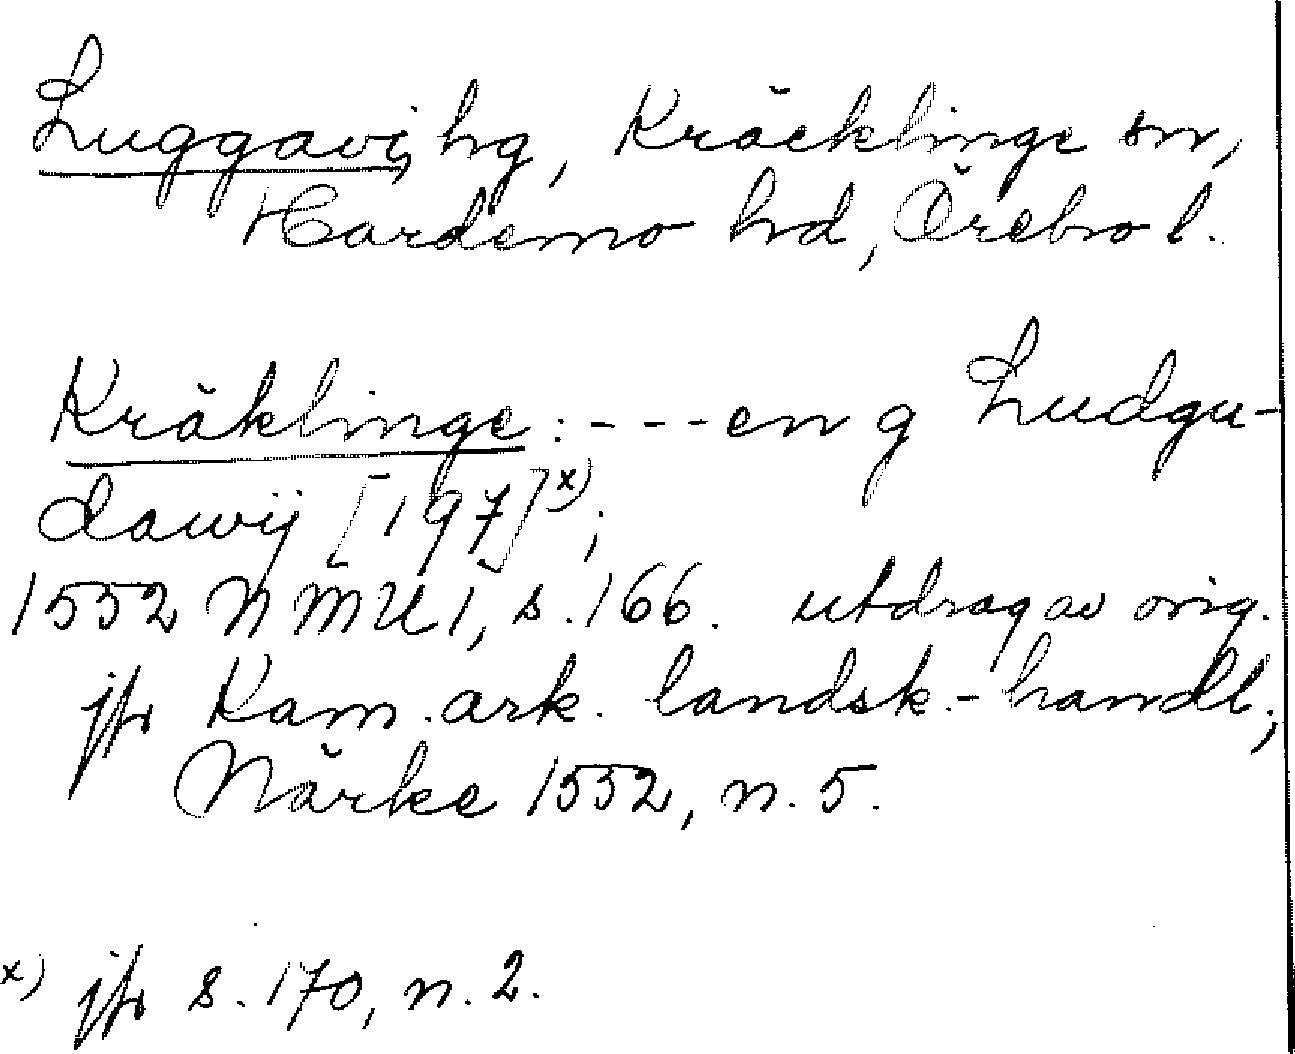 Luggavi, hg, Kräcklinge sn,
Hardemo hd, Örebro l.
Kräklinge: --- en g Ludgu-
dawij [197]x);
1552 NMU 1, s. 166. utdrag av orig.
jfr Kam. ark. landsk.-handl.,
Närke 1552, n. 5.
x) jfr s. 170, n. 2.